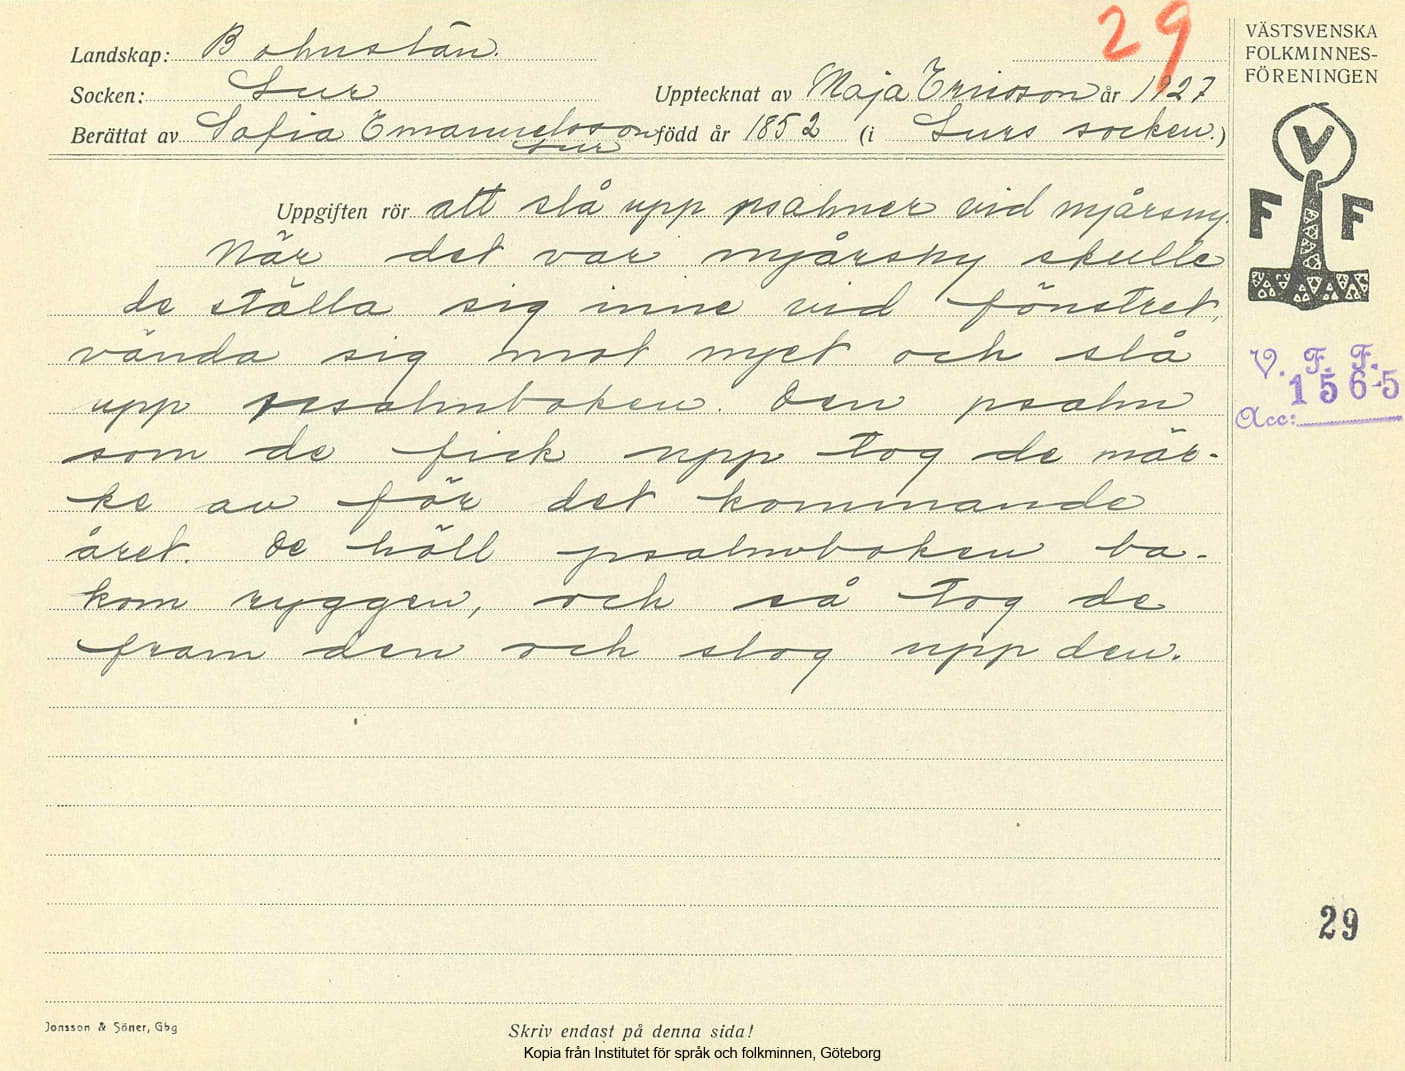 29
Landskap: Bohuslän.
Socken: Lur
Upptecknat av Maja Ericsson år 1927
Berättat av Sofia Emanuelsson född år 1852 (i Lurs socken.)
Lur
Uppgiften rör att slå upp psalmer vid nyårsny.
När det var nyårsny skulle
de ställa sig inne vid fönstret,
vända sig mot nyet och slå
upp psalmboken. Den psalm
som de fick upp tog de mär-
ke av för det kommande
året. De höll psalmboken ba-
kom ryggen, och så tog de
fram den och slog upp den.
VÄSTSVENSKA
FOLKMINNES-
FÖRENINGEN
V
F F
V. F. F.
1565
Acc:
29
Jonsson & Söner, Gbg
Skriv endast på denna sida!
Kopia från Institutet för språk och folkminnen, Göteborg